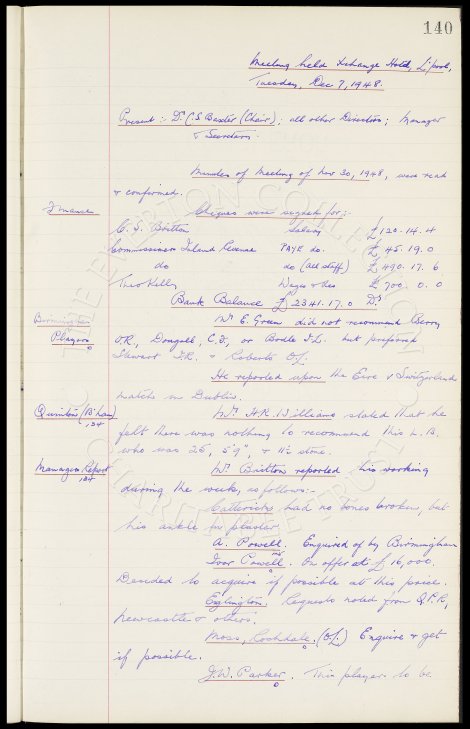 140
Meeting held Exchange Hotel, L'pool,
Tuesday, Dec 7, 1948.
Present :- Dr. C.S. Baxter (Chair); all other Directors; Manager
& Secretary.
Minutes of Meeting of Nov 30, 1948, were read
& confirmed.
Finance
Cheques were signed for:-
C. S. Britton Salary £120. 14. 4
Commissioners Inland Revenue PAYE do. £45. 19. 0
do do (all staff) £490. 17. 6
Theo Kelly Wages & £700. 0. 0
Bank Balance £2341. 17. 0 Dr
Birmingham
Players
Mr. E. Green did not recommend Berry
O.R., Dougall, C.F., or Bodle I.L. but preferred
Stewart I.R. & Roberts O.L.
He reported upon the Eire v Switzerland
match in Dublin.
Quinton (B'ham)
Mr. H.R. Williams stated that he
felt there was nothing to recommend this L.B.
who was 25, 5'9", & 11½ stone.
Managers Report
Mr. Britton reported his working
during the week, as follows:-
Catterick had no bones broken, but
his ankle in plaster
A. Powell. Enquired of by Birmingham
Ivor Powell. On offer at £16,000.
Decided to acquire if possible at this price.
Eglington. Requests noted from Q.P.R,
Newcastle & others.
Moss, Rochdale. (O.L.) Enquire & get
if possible.
J.W. Parker. This player to be